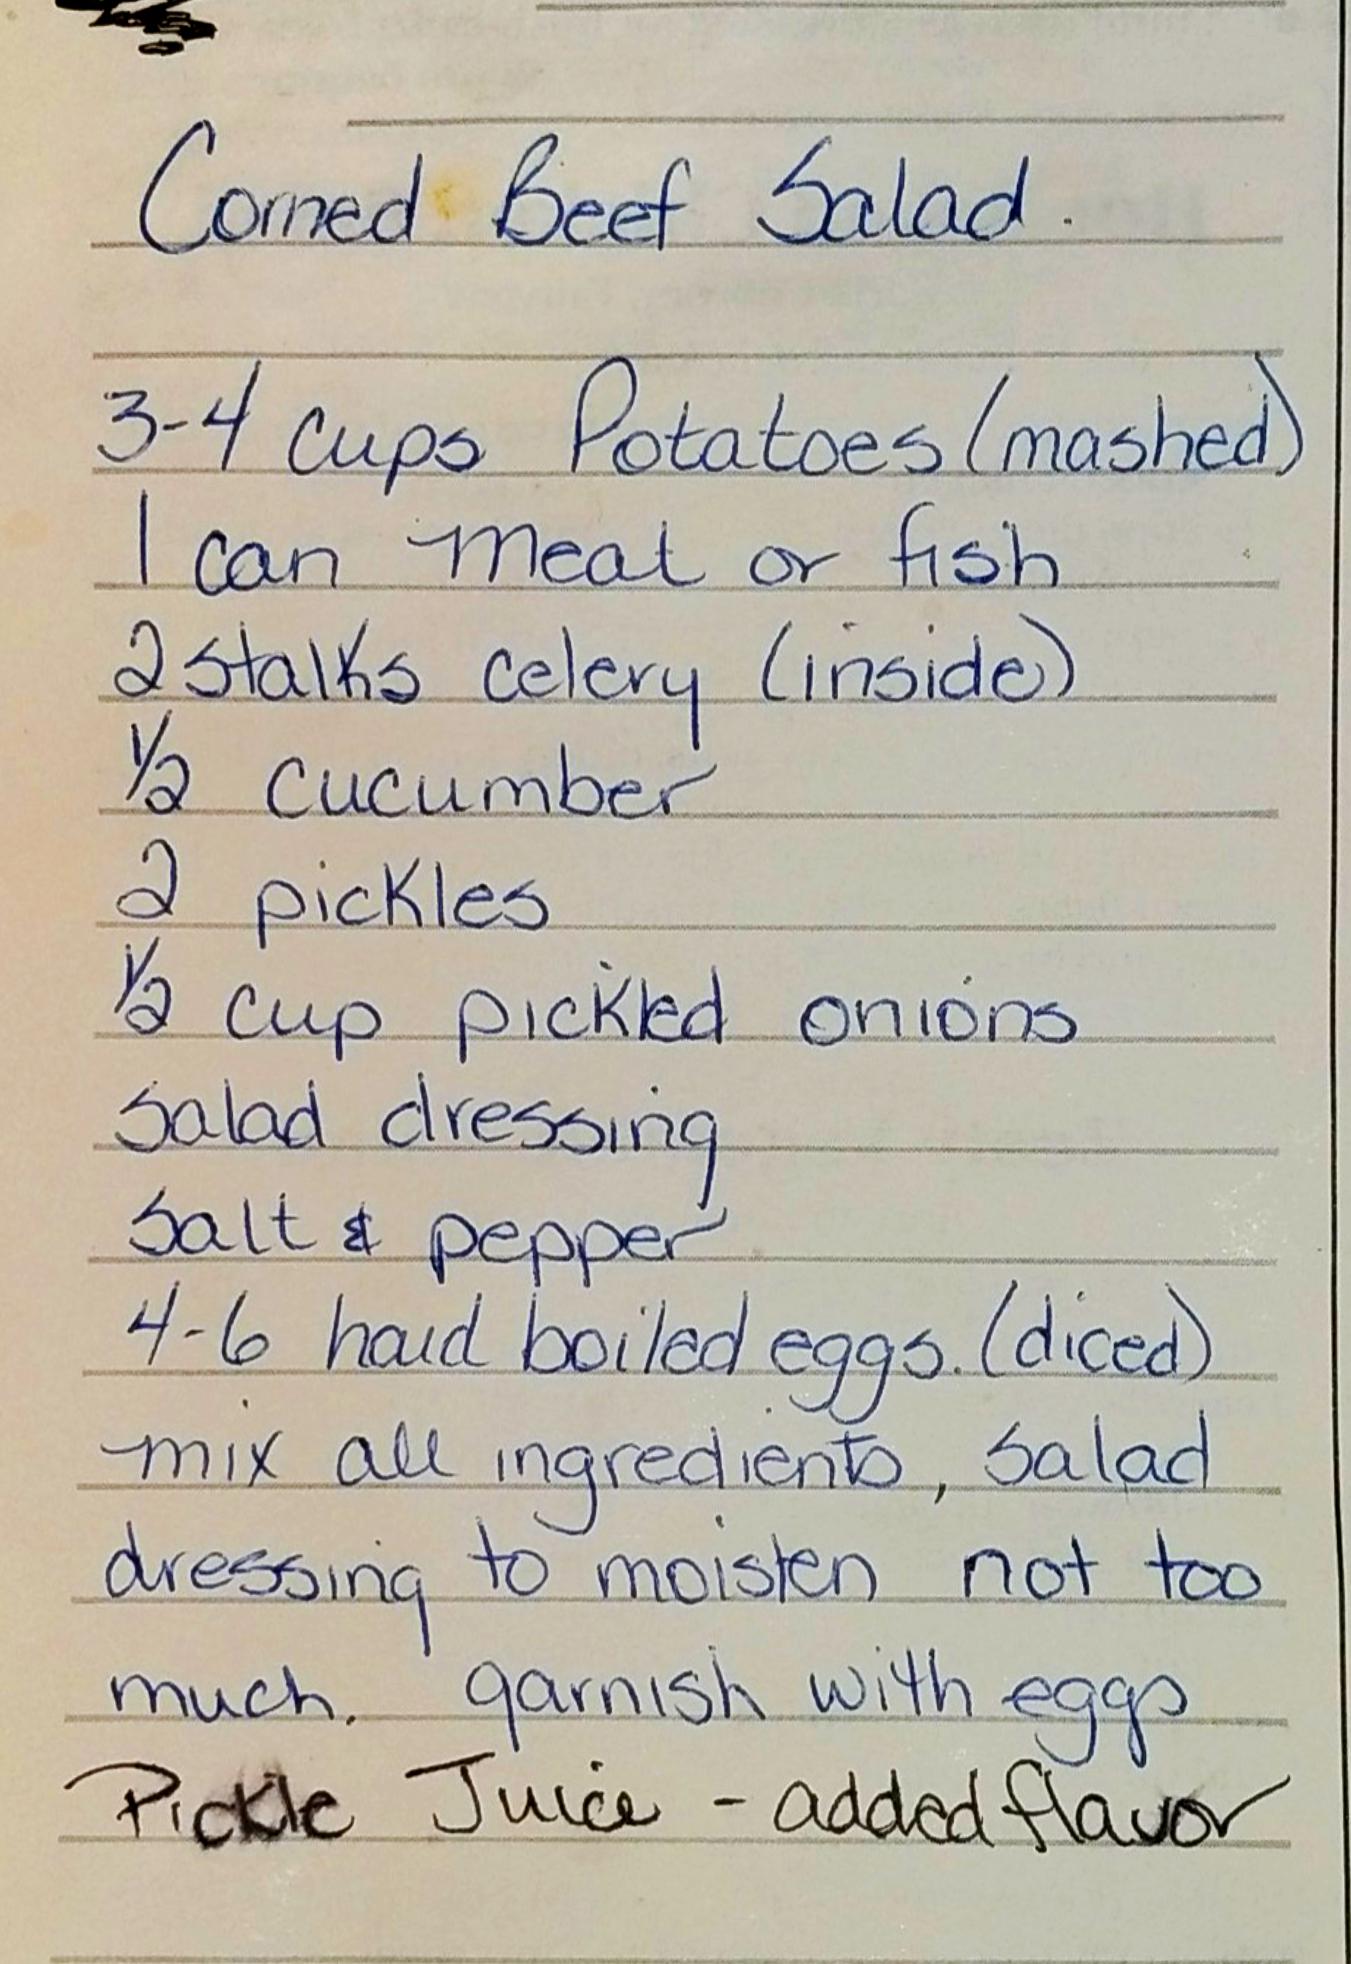 Corned Beef Salad.
3-4 cups Potatoes (mashed)
1 can meat or fish
2 stalks celery (inside)
1/2 cucumber
2 pickles
1/2 cup pickled onions
salad dressing
salt & pepper
4-6 hard boiled eggs. (diced)
mix all ingredients, salad
dressing to moisten not too
much. garnish with eggs
Pickle Juice - added flavor